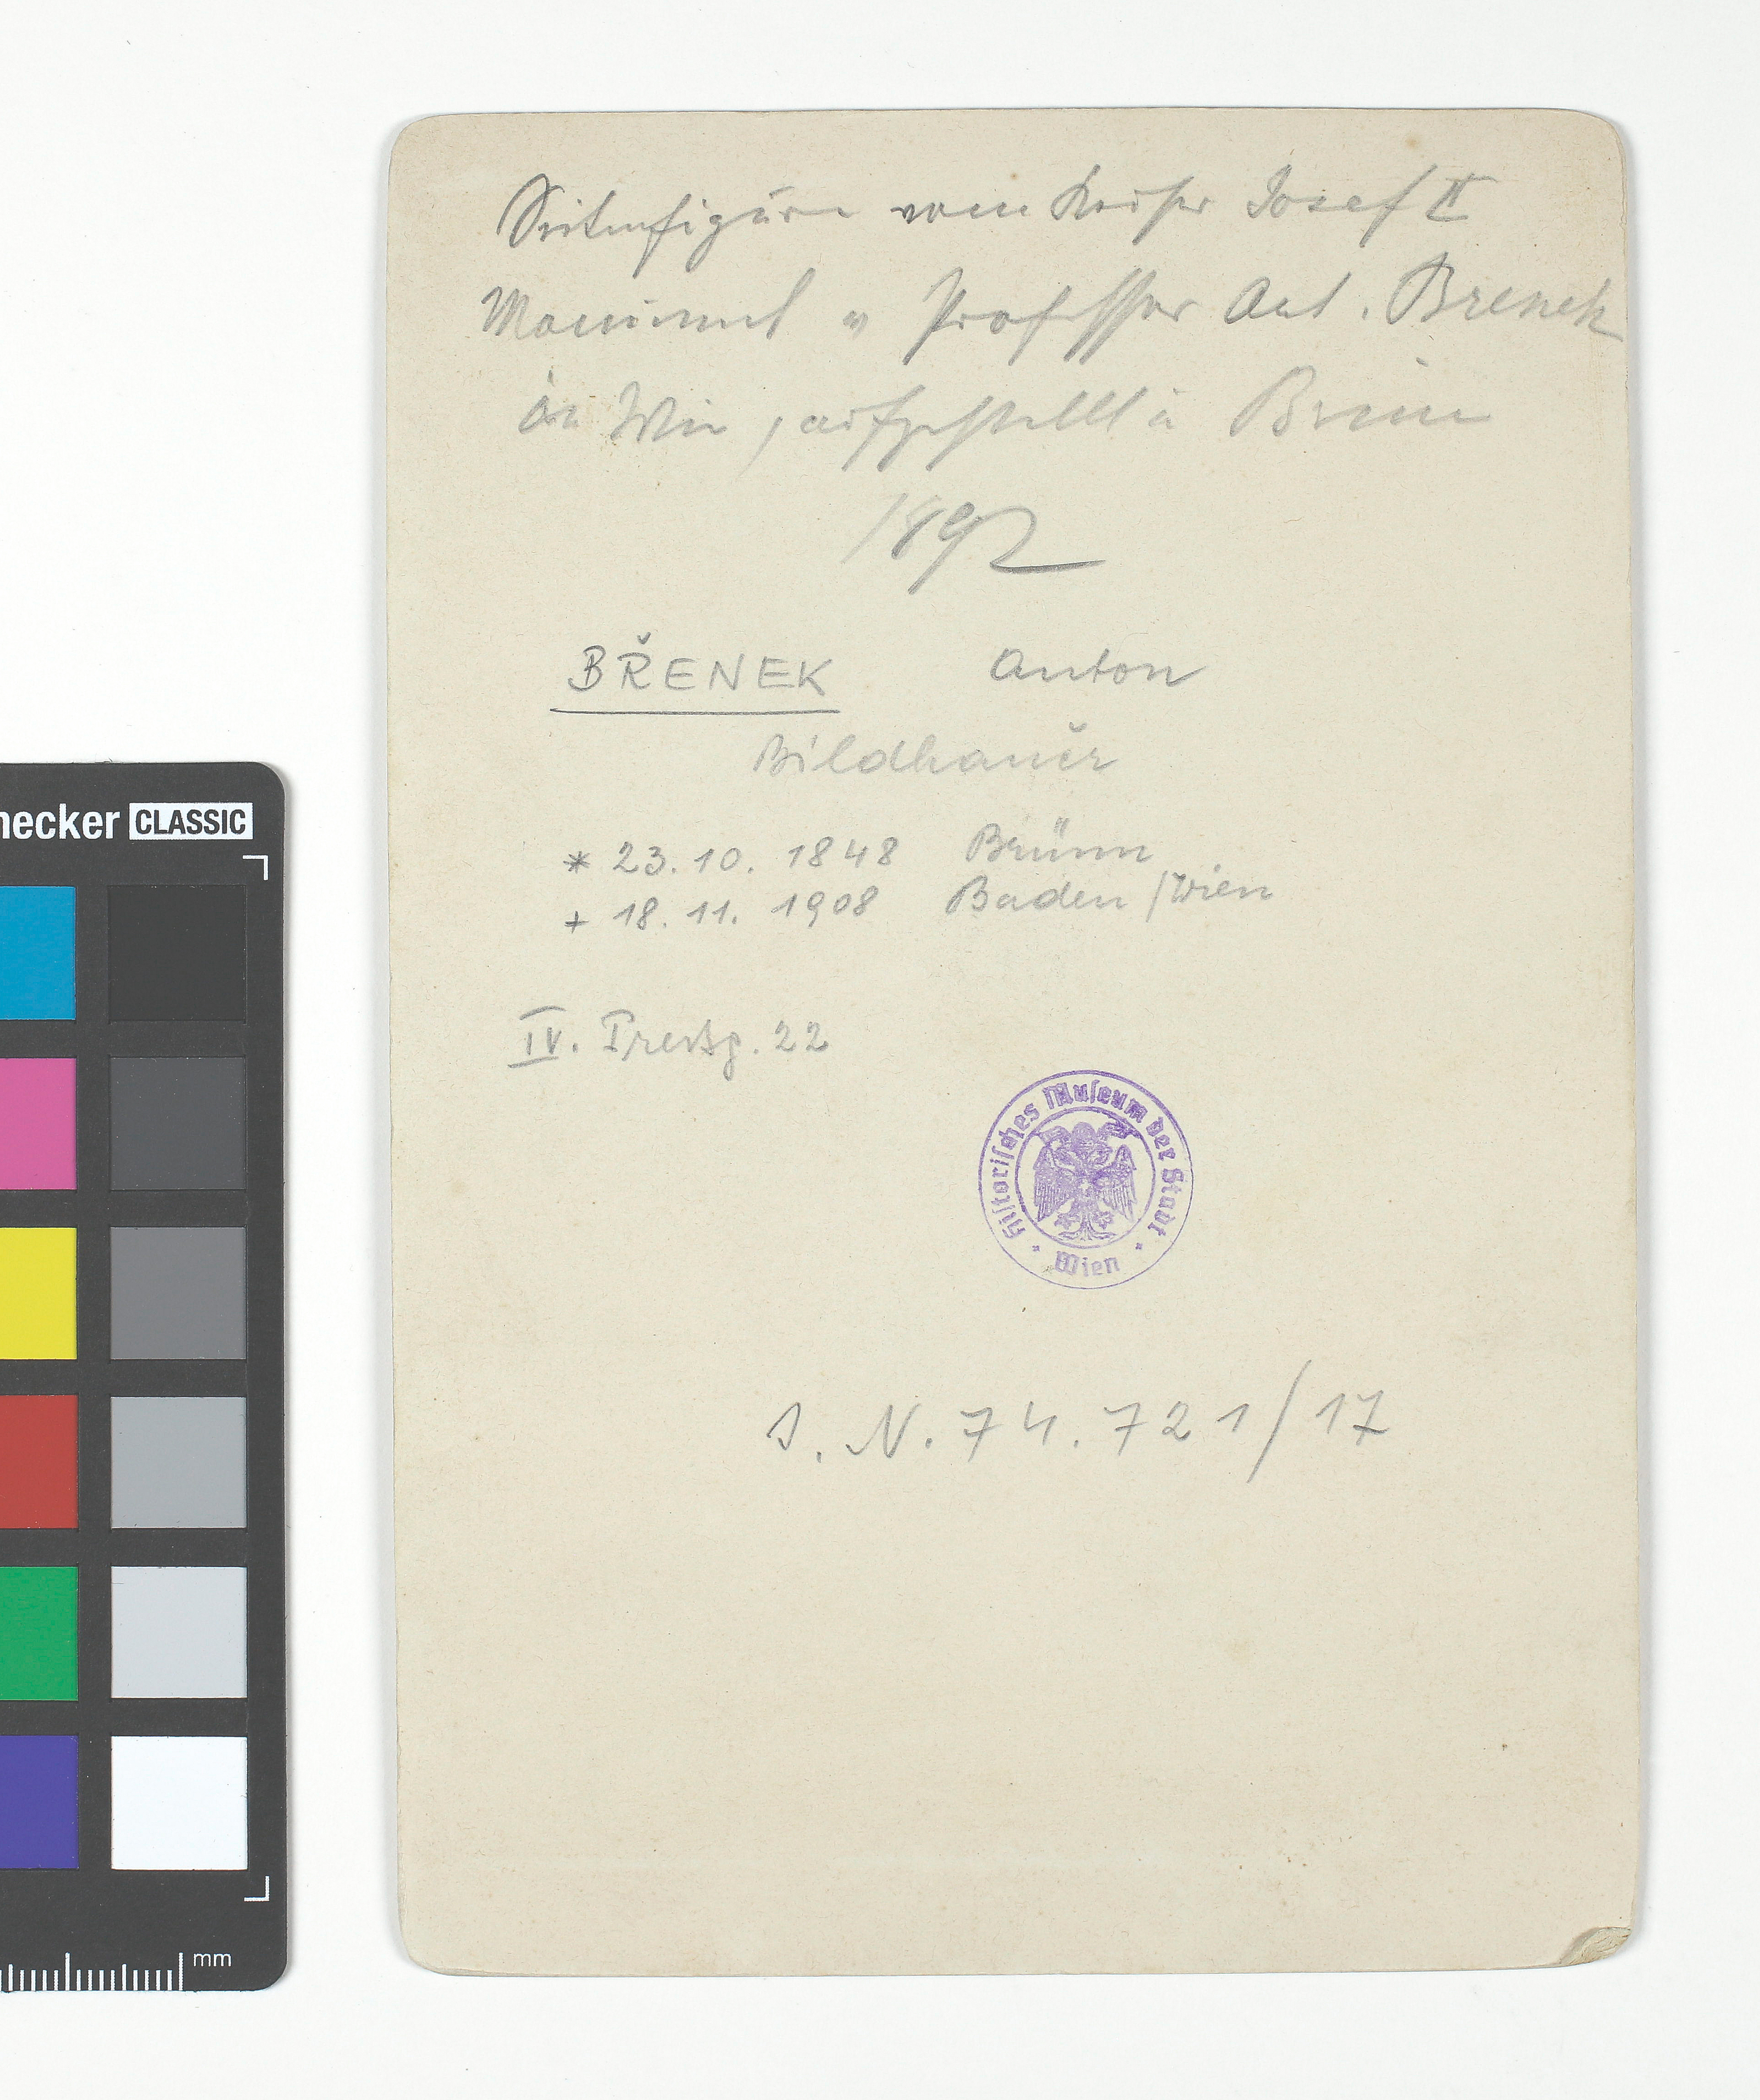 Seitenfiguren vom Kaiser Josef II
Monument v Professor Ant. Brenek
in Wien, aufgestellt in Brünn
1892
BŘENEK Anton
Bildhauer
* 23. 10. 1848 Brünn
+ 18. 11. 1908 Baden / Wien
IV. 22
Historisches Museum der Stadt
Wien
I. N. 74.721/17
necker CLASSIC
mm